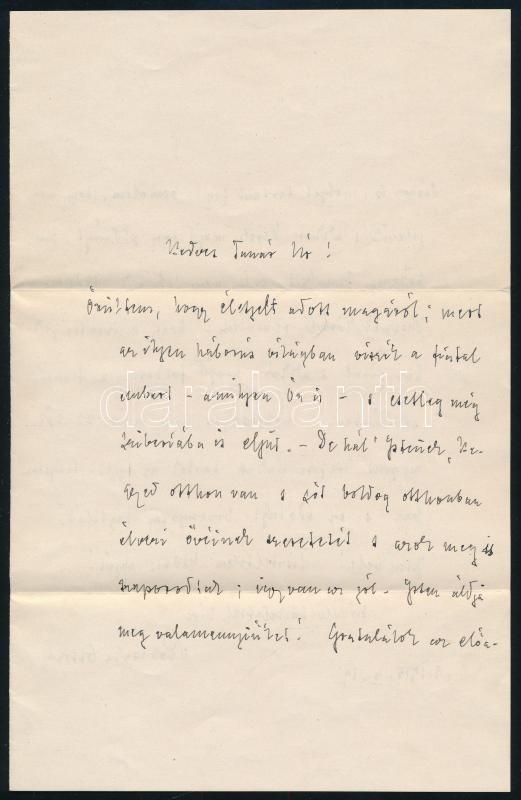 Kedves Tanár Úr!
Örültem, hogy életjelt adott magáról; mert
az ilyen háborús világban viszik a fiatal
embert - amilyen Ön is - s esetleg még
Szibériába is eljut. - De hál' Istennek, Ke-
gyed otthon van s jól boldog otthonban
élvezi övéinek szeretetét s azok meg is
szaporodtak; így van ez jól. Isten áldja
meg valamennyiüket! Gratulálok az előa-
darabanth